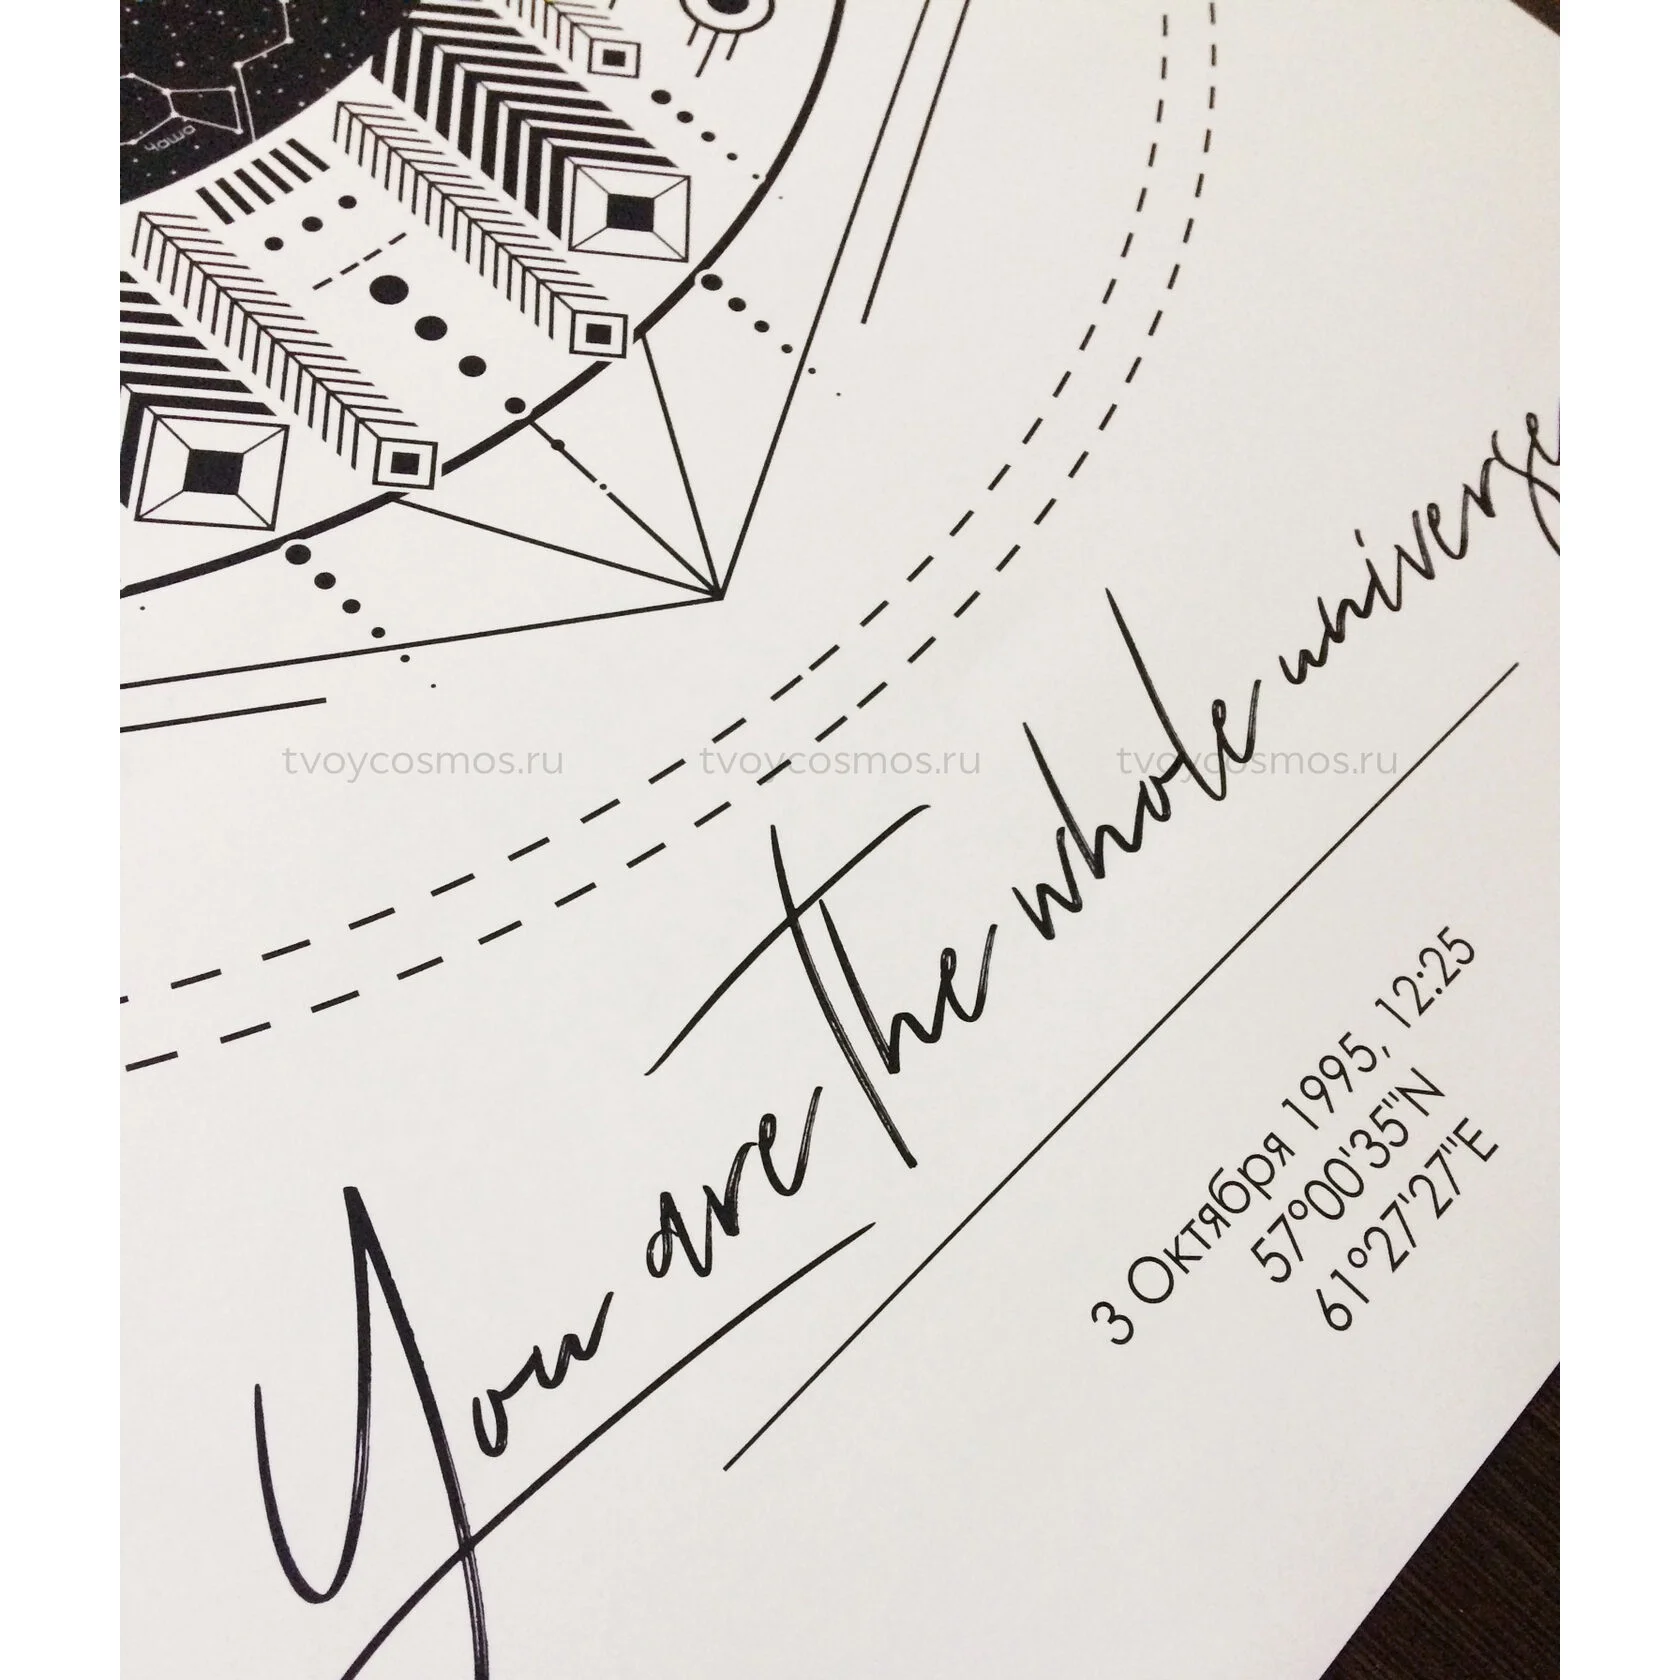 Чаша
tvoycosmos.ru tvoycosmos.ru tvoycosmos.ru
You are the whole universe
3 Октября 1995, 12:25
57°00'35"N
61°27'27"E